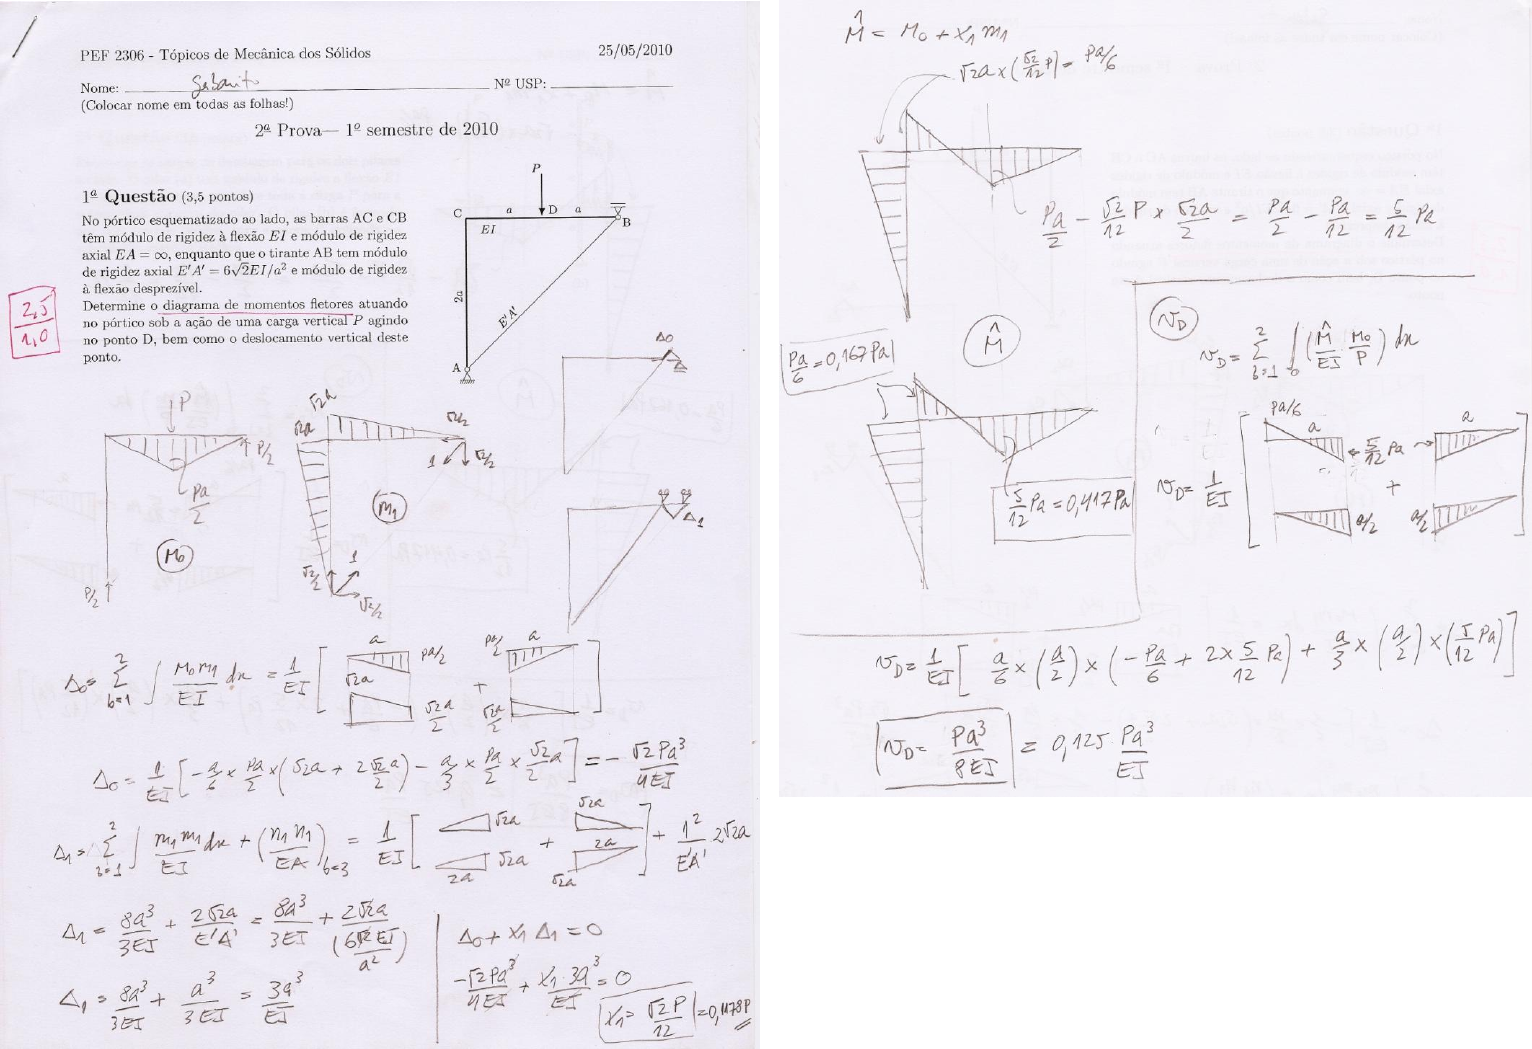 PEF 2306 - Tópicos de Mecânica dos Sólidos 25/05/2010
Nome: Gabarito Nº USP:
(Colocar nome em todas as folhas!)
2ª Prova— 1º semestre de 2010
1ª Questão (3,5 pontos)
No pórtico esquematizado ao lado, as barras AC e CB
têm módulo de rigidez à flexão EI e módulo de rigidez
axial EA = ∞, enquanto que o tirante AB tem módulo
de rigidez axial E'A' = 6√2EI/a² e módulo de rigidez
à flexão desprezível.
Determine o diagrama de momentos fletores atuando
no pórtico sob a ação de uma carga vertical P agindo
no ponto D, bem como o deslocamento vertical deste
ponto.
2,5
1,0
P
C a D a B
EI
2a
E'A'
A
Δ0
P
P/2
Pa/2
M0
P/2
√2a
√2a
√2/2
1 √2/2
m1
1
√2/2
√2/2
Δ1
Δ0 = Σ b=1 2 ∫ M0m1/EI dx = 1/EI [ a Pa/2 √2a √2a/2 + Pa/2 a √2a/2 ]
Δ0 = 1/EI [ -a/6 × Pa/2 × (√2a + 2√2a/2) - a/3 × Pa/2 × √2a/2 ] = - √2Pa³/4EI
Δ1 = Σ b=1 2 ∫ m1m1/EI dx + (n1n1/EA) b=3 = 1/EI [ √2a √2a 2a + √2a 2a √2a ] + 1²/E'A' 2√2a
Δ1 = 8a³/3EI + 2√2a/E'A' = 8a³/3EI + 2√2a/(6√2EI/a²)
Δ1 = 8a³/3EI + a³/3EI = 3a³/EI
Δ0 + X1 Δ1 = 0
-√2Pa³/4EI + X1·3a³/EI = 0
X1 = √2P/12 = 0,1178P
M̂ = M0 + X1m1
√2a × (√2/12 P) = Pa/6
Pa/2 - √2/12 P × √2a/2 = Pa/2 - Pa/12 = 5/12 Pa
M̂
Pa/6 = 0,167Pa
5/12 Pa = 0,417Pa
vD
vD = Σ b=1 2 ∫0 (M̂/EI · M0/P) dx
vD = 1/EI [ Pa/6 a 5/12 Pa a/2 + a a/2 ]
vD = 1/EI [ a/6 × (a/2) × (-Pa/6 + 2 × 5/12 Pa) + a/3 × (a/2) × (5/12 Pa) ]
vD = Pa³/8EI = 0,125 Pa³/EI